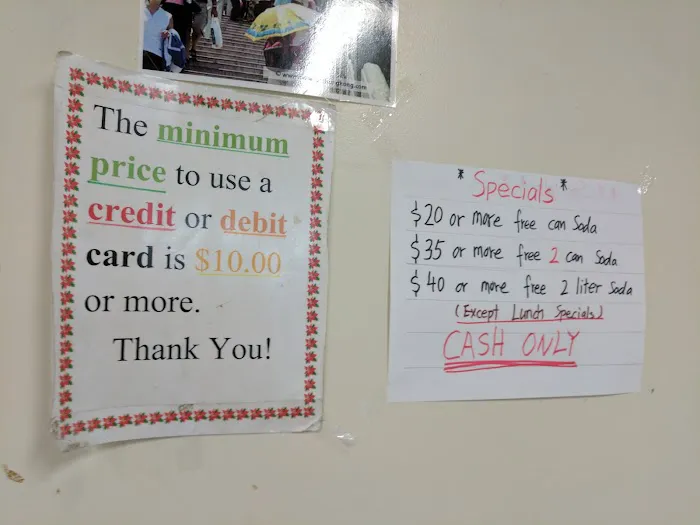 The minimum
price to use a
credit or debit
card is $10.00
or more.
Thank You!
* Specials *
$20 or more free can Soda
$35 or more free 2 can Soda
$40 or more free 2 liter Soda
(Except Lunch Specials)
CASH ONLY